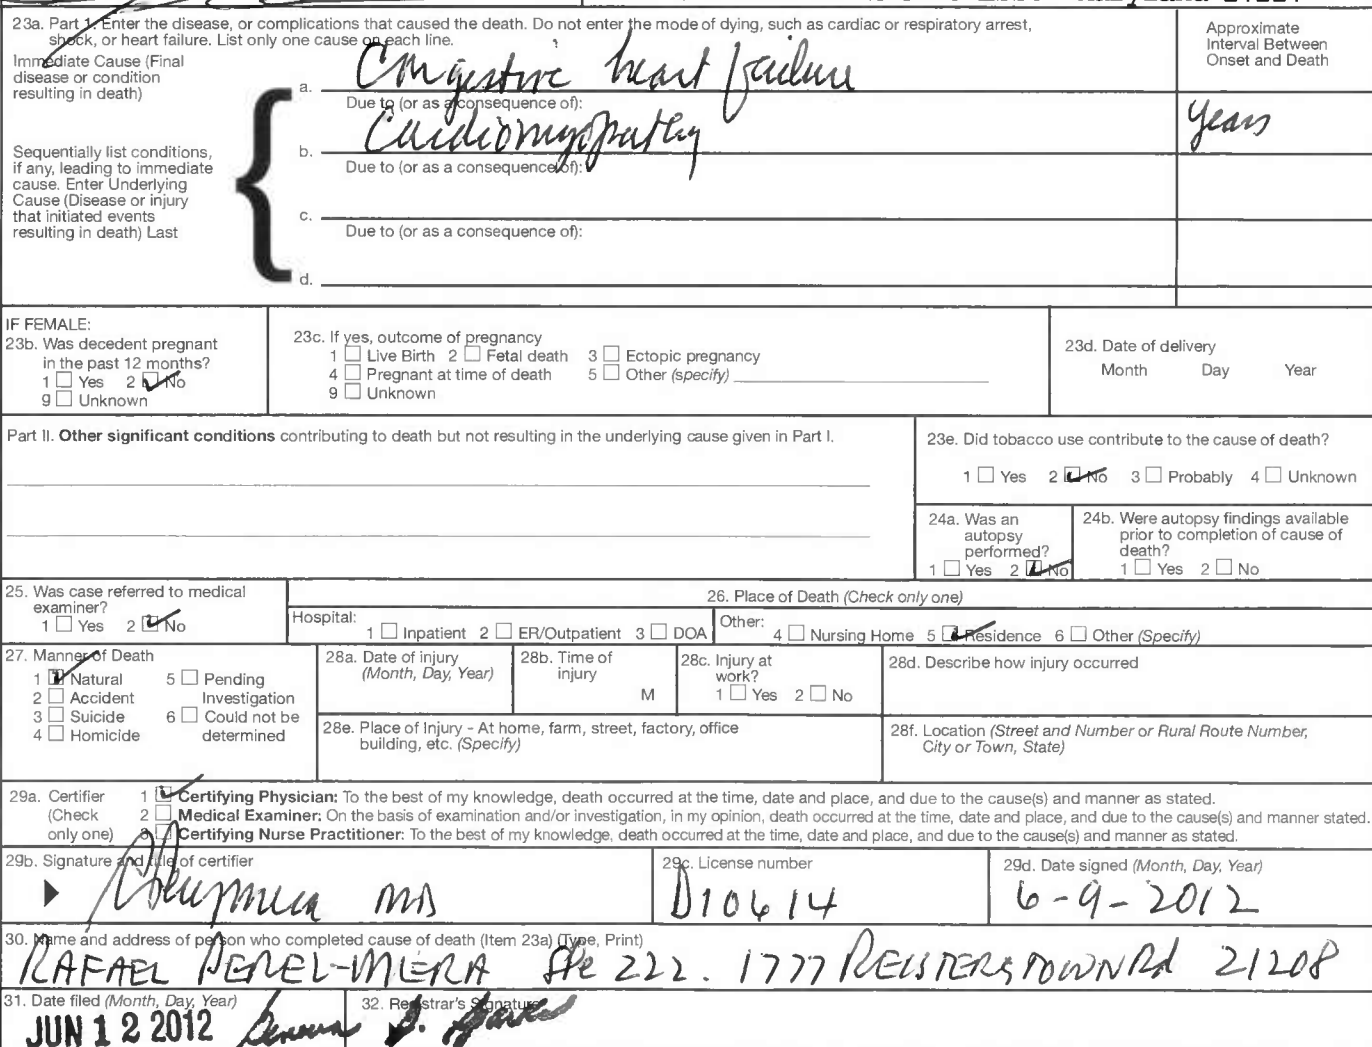 23a. Part 1. Enter the disease, or complications that caused the death. Do not enter the mode of dying, such as cardiac or respiratory arrest,
shock, or heart failure. List only one cause on each line.
Approximate
Interval Between
Onset and Death
Immediate Cause (Final
disease or condition
resulting in death)
a. Congestive heart failure
Due to (or as a consequence of):
Sequentially list conditions,
if any, leading to immediate
cause. Enter Underlying
Cause (Disease or injury
that initiated events
resulting in death) Last
b. Cardiomyopathy
years
Due to (or as a consequence of):
c.
Due to (or as a consequence of):
d.
IF FEMALE:
23b. Was decedent pregnant
in the past 12 months?
1 ☐ Yes 2 ☑ No
9 ☐ Unknown
23c. If yes, outcome of pregnancy
1 ☐ Live Birth 2 ☐ Fetal death 3 ☐ Ectopic pregnancy
4 ☐ Pregnant at time of death 5 ☐ Other (specify)
9 ☐ Unknown
23d. Date of delivery
Month Day Year
Part II. Other significant conditions contributing to death but not resulting in the underlying cause given in Part I.
23e. Did tobacco use contribute to the cause of death?
1 ☐ Yes 2 ☑ No 3 ☐ Probably 4 ☐ Unknown
24a. Was an
autopsy
performed?
1 ☐ Yes 2 ☑ No
24b. Were autopsy findings available
prior to completion of cause of
death?
1 ☐ Yes 2 ☐ No
25. Was case referred to medical
examiner?
1 ☐ Yes 2 ☑ No
26. Place of Death (Check only one)
Hospital: 1 ☐ Inpatient 2 ☐ ER/Outpatient 3 ☐ DOA
Other: 4 ☐ Nursing Home 5 ☑ Residence 6 ☐ Other (Specify)
27. Manner of Death
1 ☑ Natural 5 ☐ Pending
2 ☐ Accident Investigation
3 ☐ Suicide 6 ☐ Could not be
4 ☐ Homicide determined
28a. Date of injury
(Month, Day, Year)
28b. Time of
injury
M
28c. Injury at
work?
1 ☐ Yes 2 ☐ No
28d. Describe how injury occurred
28e. Place of Injury - At home, farm, street, factory, office
building, etc. (Specify)
28f. Location (Street and Number or Rural Route Number,
City or Town, State)
29a. Certifier
(Check
only one)
1 ☑ Certifying Physician: To the best of my knowledge, death occurred at the time, date and place, and due to the cause(s) and manner as stated.
2 ☐ Medical Examiner: On the basis of examination and/or investigation, in my opinion, death occurred at the time, date and place, and due to the cause(s) and manner stated.
3 ☐ Certifying Nurse Practitioner: To the best of my knowledge, death occurred at the time, date and place, and due to the cause(s) and manner as stated.
29b. Signature and title of certifier
MD
29c. License number
D10614
29d. Date signed (Month, Day, Year)
6-9-2012
30. Name and address of person who completed cause of death (Item 23a) (Type, Print)
RAFAEL PEREL-MERA Ste 222. 1777 REISTERSTOWN Rd 21208
31. Date filed (Month, Day, Year)
JUN 12 2012
32. Registrar's Signature